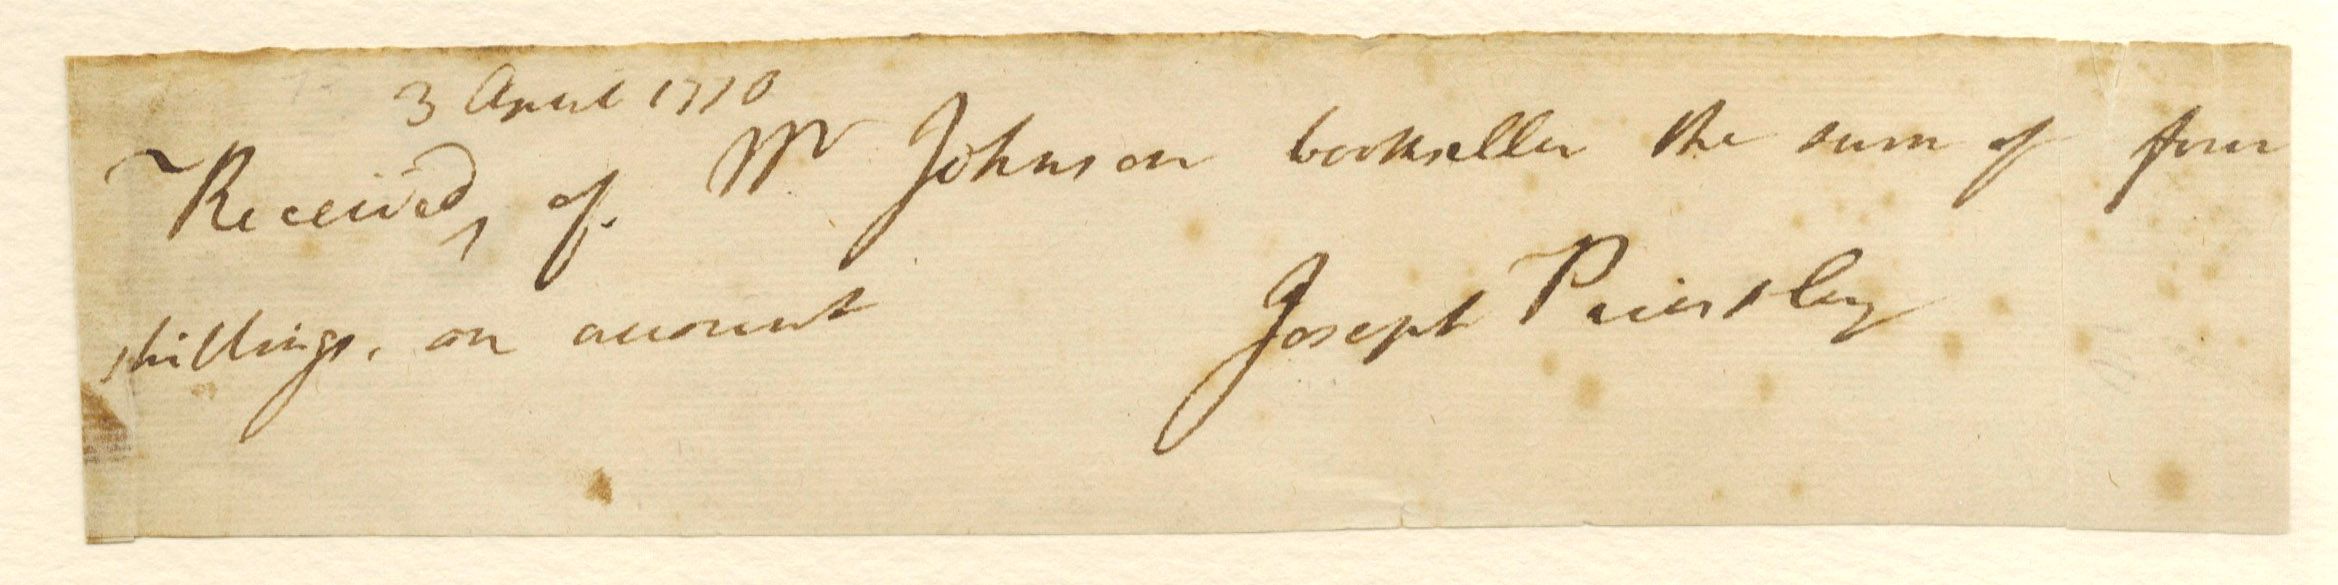 3 April 1770
Received, of Mr Johnson bookseller the sum of four
shillings, on account
Joseph Priestley